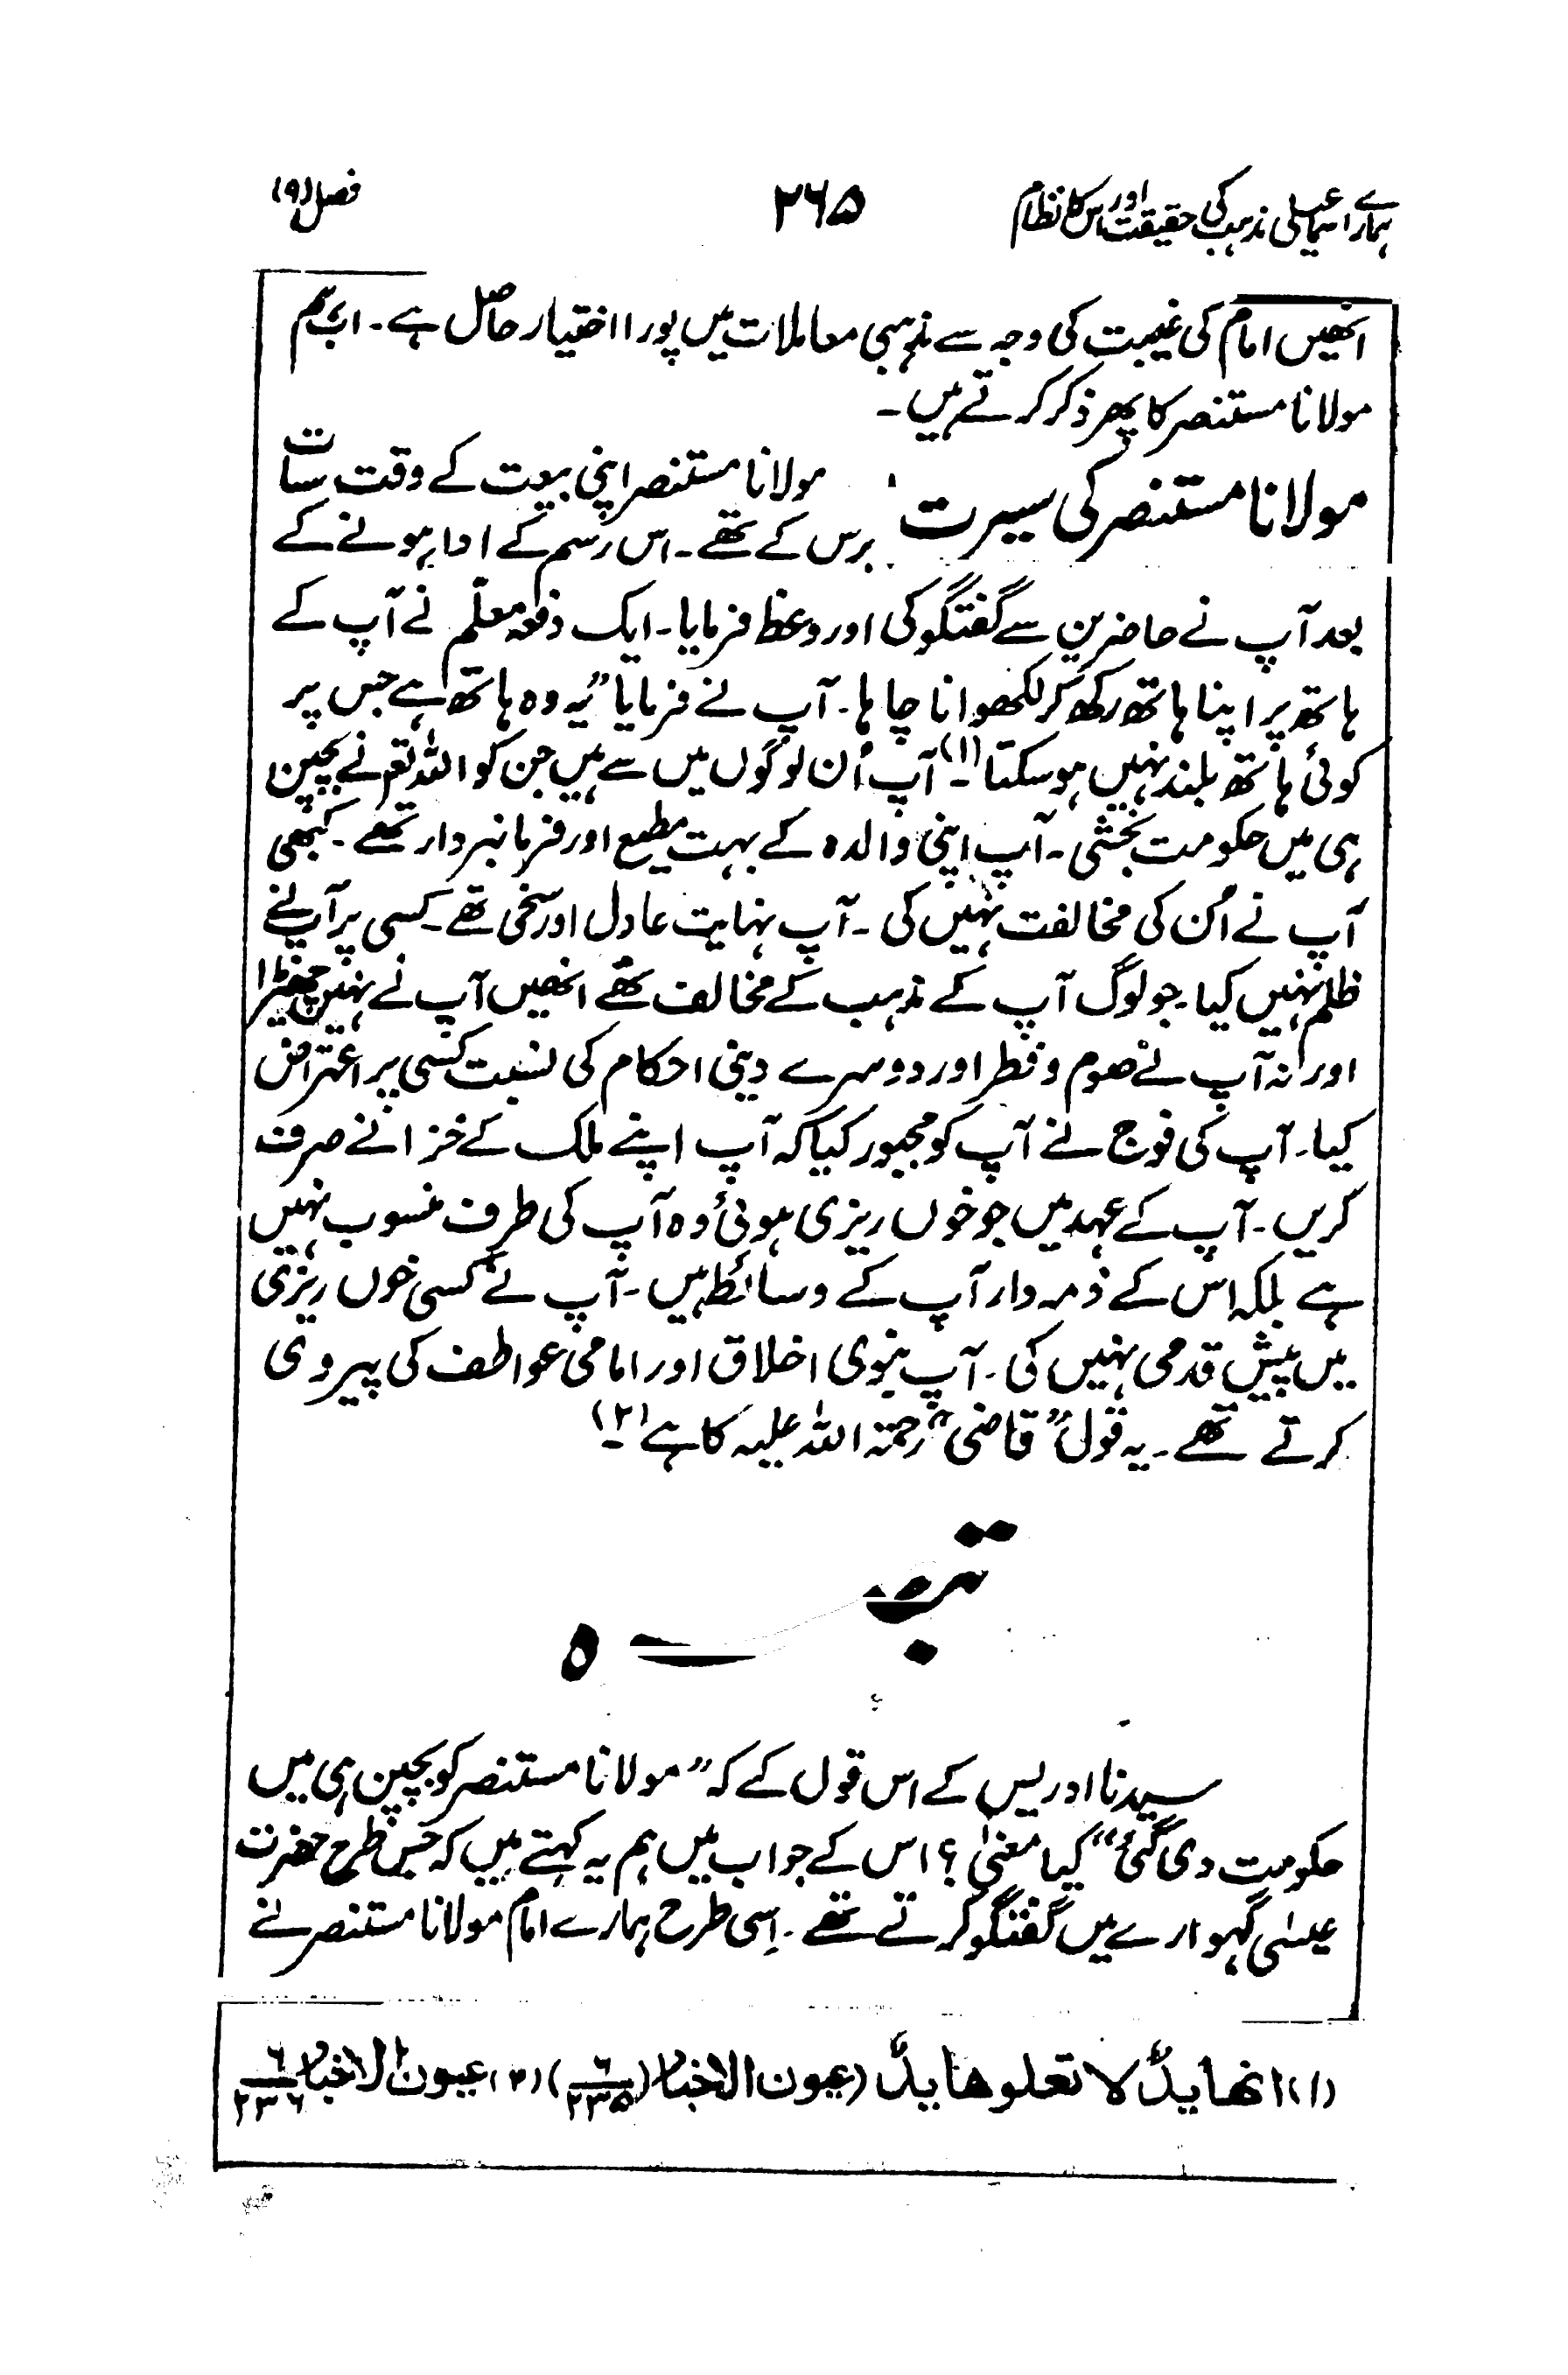 ہمارے اسماعیلی مذہب کی حقیقت اور اس کا نظام ۲۶۵ فصل (۹)
انھیں امام کی غیبت کی وجہ سے مذہبی معاملات میں پورا اختیار حاصل ہے۔ اب ہم
مولانا مستنصر کا پھر ذکر کرتے ہیں۔
مولانا مستنصر کی سیرت مولانا مستنصر اپنی بیعت کے وقت سات
برس کے تھے۔ اس رسم کے ادا ہونے کے
بعد آپ نے حاضرین سے گفتگو کی اور وعظ فرمایا۔ ایک دفعہ معلّم نے آپ کے
ہاتھ پر اپنا ہاتھ رکھ کر لکھوانا چاہا۔ آپ نے فرمایا ”یہ وہ ہاتھ ہے جس پر
کوئی ہاتھ بلند نہیں ہو سکتا (۱)۔ آپ اُن لوگوں میں سے ہیں جن کو اللہ تعم نے بچپن
ہی میں حکومت بخشی۔ آپ اپنی والدہ کے بہت مطیع اور فرمانبردار تھے۔ کبھی
آپ نے اُن کی مخالفت نہیں کی۔ آپ نہایت عادل اور سخی تھے۔ کسی پر آپ نے
ظلم نہیں کیا۔ جو لوگ آپ کے مذہب کے مخالف تھے انھیں آپ نے نہیں چھیڑا
اور نہ آپ نے صوم و فطر اور دوسرے دینی احکام کی نسبت کسی پر اعتراض
کیا۔ آپ کی فوج نے آپ کو مجبور کیا کہ آپ اپنے ملک کے خزانے صرف
کریں۔ آپ کے عہد میں جو خوں ریزی ہوئی وہ آپ کی طرف منسوب نہیں
ہے بلکہ اس کے ذمہ دار آپ کے وسائط ہیں۔ آپ نے کسی خوں ریزی
میں پیش قدمی نہیں کی۔ آپ نبوی اخلاق اور امامی عواطف کی پیروی
کرتے تھے۔ یہ قول ”قاضی“ رحمتہ اللہ علیہ کا ہے (۲)۔
تبصرہ
سیدنا ادریس کے اس قول کے کہ ”مولانا مستنصر کو بچپن ہی میں
حکومت دی گئی“ کیا معنیٰ؟ اس کے جواب میں ہم یہ کہتے ہیں کہ جس طرح حضرت
عیسٰی گہوارے میں گفتگو کرتے تھے۔ اِسی طرح ہمارے امام مولانا مستنصر نے
(۱) انھا یدٌ لا تعلوھا یدٌ (عیون الاخبار ۶/۲۳۵) (۲) عیون الاخبار ۶/۲۳۶